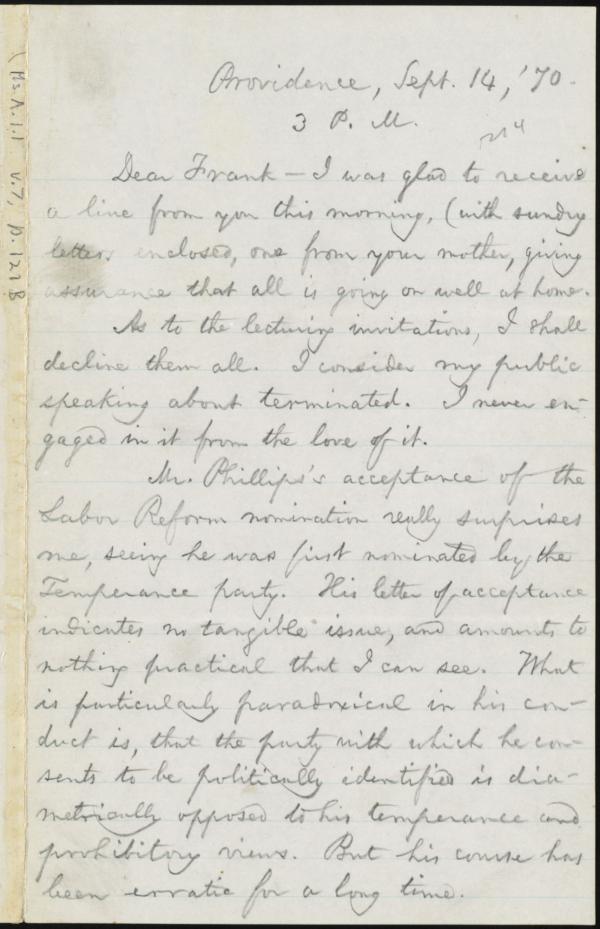 Providence, Sept. 14, '70.
3 P. M.
Dear Frank — I was glad to receive
a line from you this morning, (with sundry
letters enclosed, one from your mother, giving
assurance that all is going on well at home.
As to the lecturing invitations, I shall
decline them all. I consider my public
speaking about terminated. I never en-
gaged in it from the love of it.
Mr. Phillips's acceptance of the
Labor Reform nomination really surprises
me, seeing he was first nominated by the
Temperance party. His letter of acceptance
indicates no tangible issue, and amounts to
nothing practical that I can see. What
is particularly paradoxical in his con-
duct is, that the party with which he con-
sents to be politically identified is dia-
metrically opposed to his temperance and
prohibitory views. But his course has
been erratic for a long time.
Ms. A. 1.1 v. 7, p. 121B